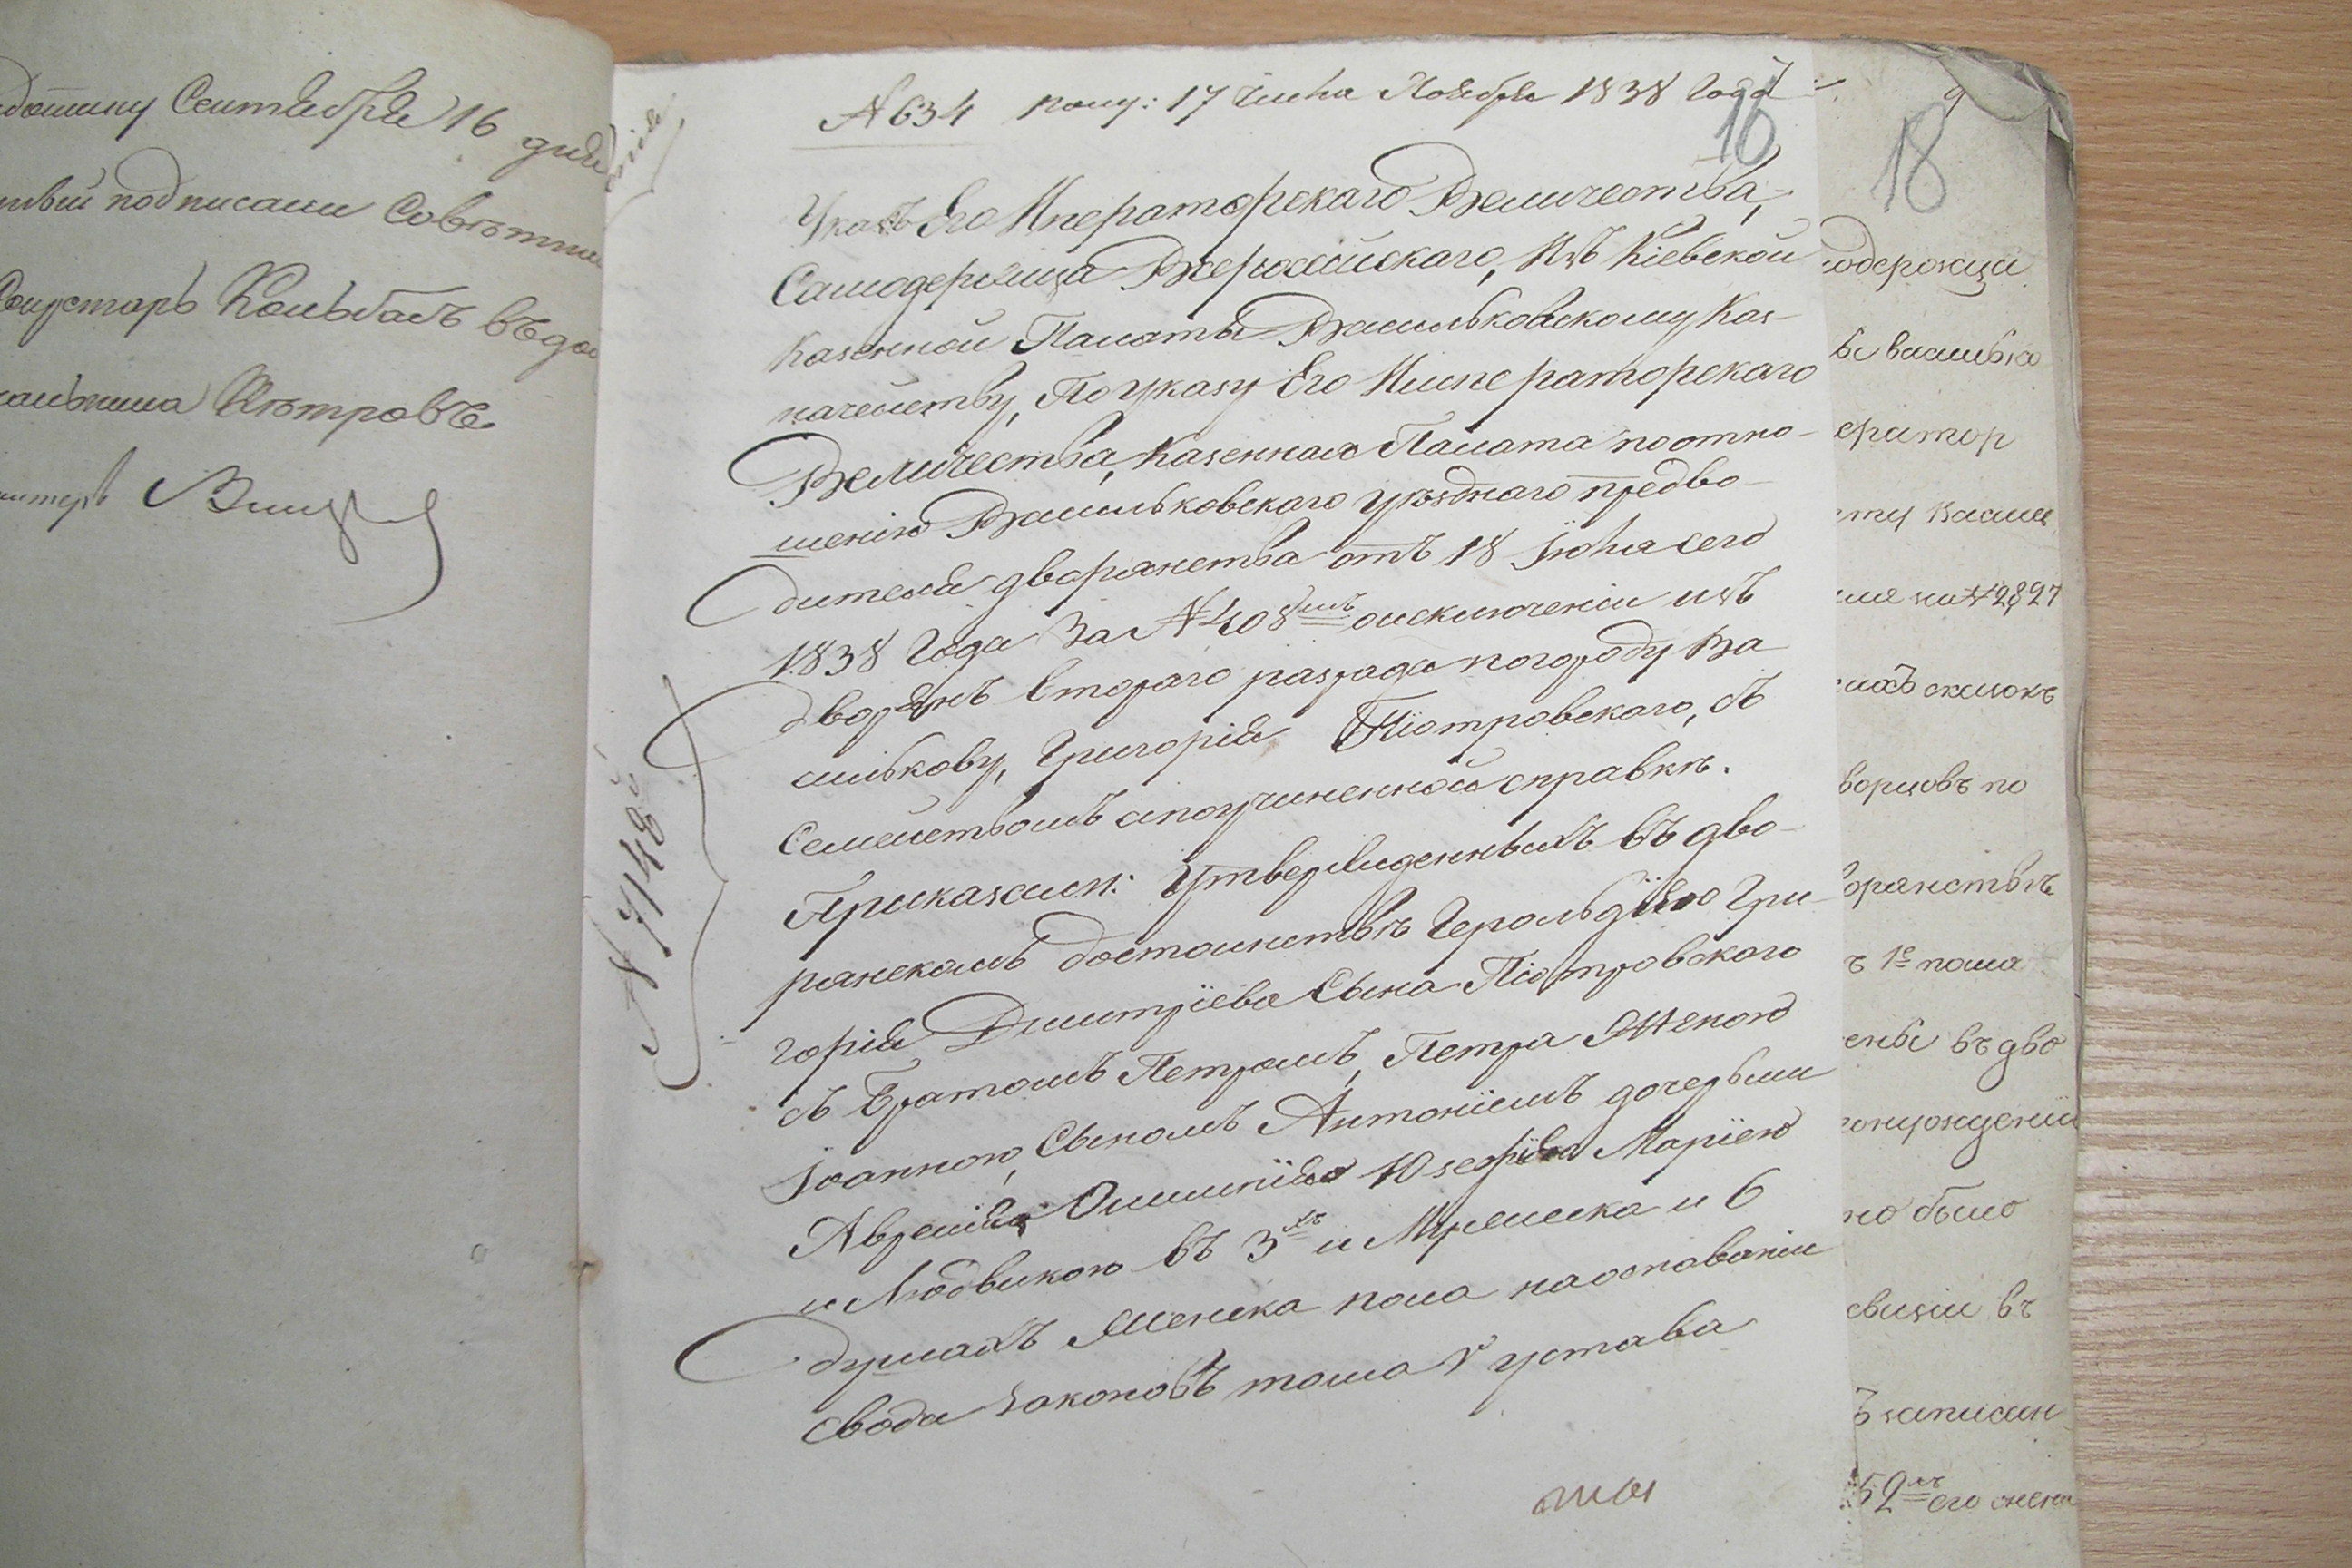 Сентября 16 дня
подписали Совѣтни
Секретарь
Петровъ
№ 634 получ: 17 числа Ноября 1838 Года
16
Указъ Его Имераторскаго Величества,
Самодержца Всероссійскаго, Изъ Кіевской
Казенной Палаты Васильковскому Каз-
начейству, По указу Его Императорскаго
Величества, Казенная Палата поотно-
шенію Васильковскаго уѣзднаго предво-
дителя дворянства отъ 18 Іюня сего
1838 Года За № 408мъ оисключеніи изъ
дворянъ втораго разряда погороду Ва
силькову, Григорія Піотровскаго, съ
Семействомъ ипоучиненной справкѣ.
Приказали: Утвержденныхъ въ дво-
рянскомъ достоинствѣ Герольдіею Гри-
горія Дмитріева Сына Піотровскаго
съ Братомъ Петромъ, Петра Женою
Іоанною, Сыномъ Антоніемъ дочерьми
Марією
и Людвикою въ 3хъ и Мужеска и 6
душахъ Женска пола наоснованіи
Свода Законовъ тома V устава
№ 7148й
18
одержца
ы васильк
ератор
ству васил
на № 2827
ворцовъ по
ворянствѣ
ъ 1е пола
ены въ дво
но было
евизіи въ
ъ записан
52мъ его жена